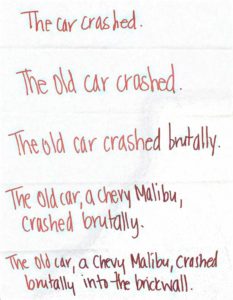 The car crashed.
The old car crashed.
The old car crashed brutally.
The old car, a Chevy Malibu,
crashed brutally.
The old car, a Chevy Malibu, crashed
brutally into the brickwall.